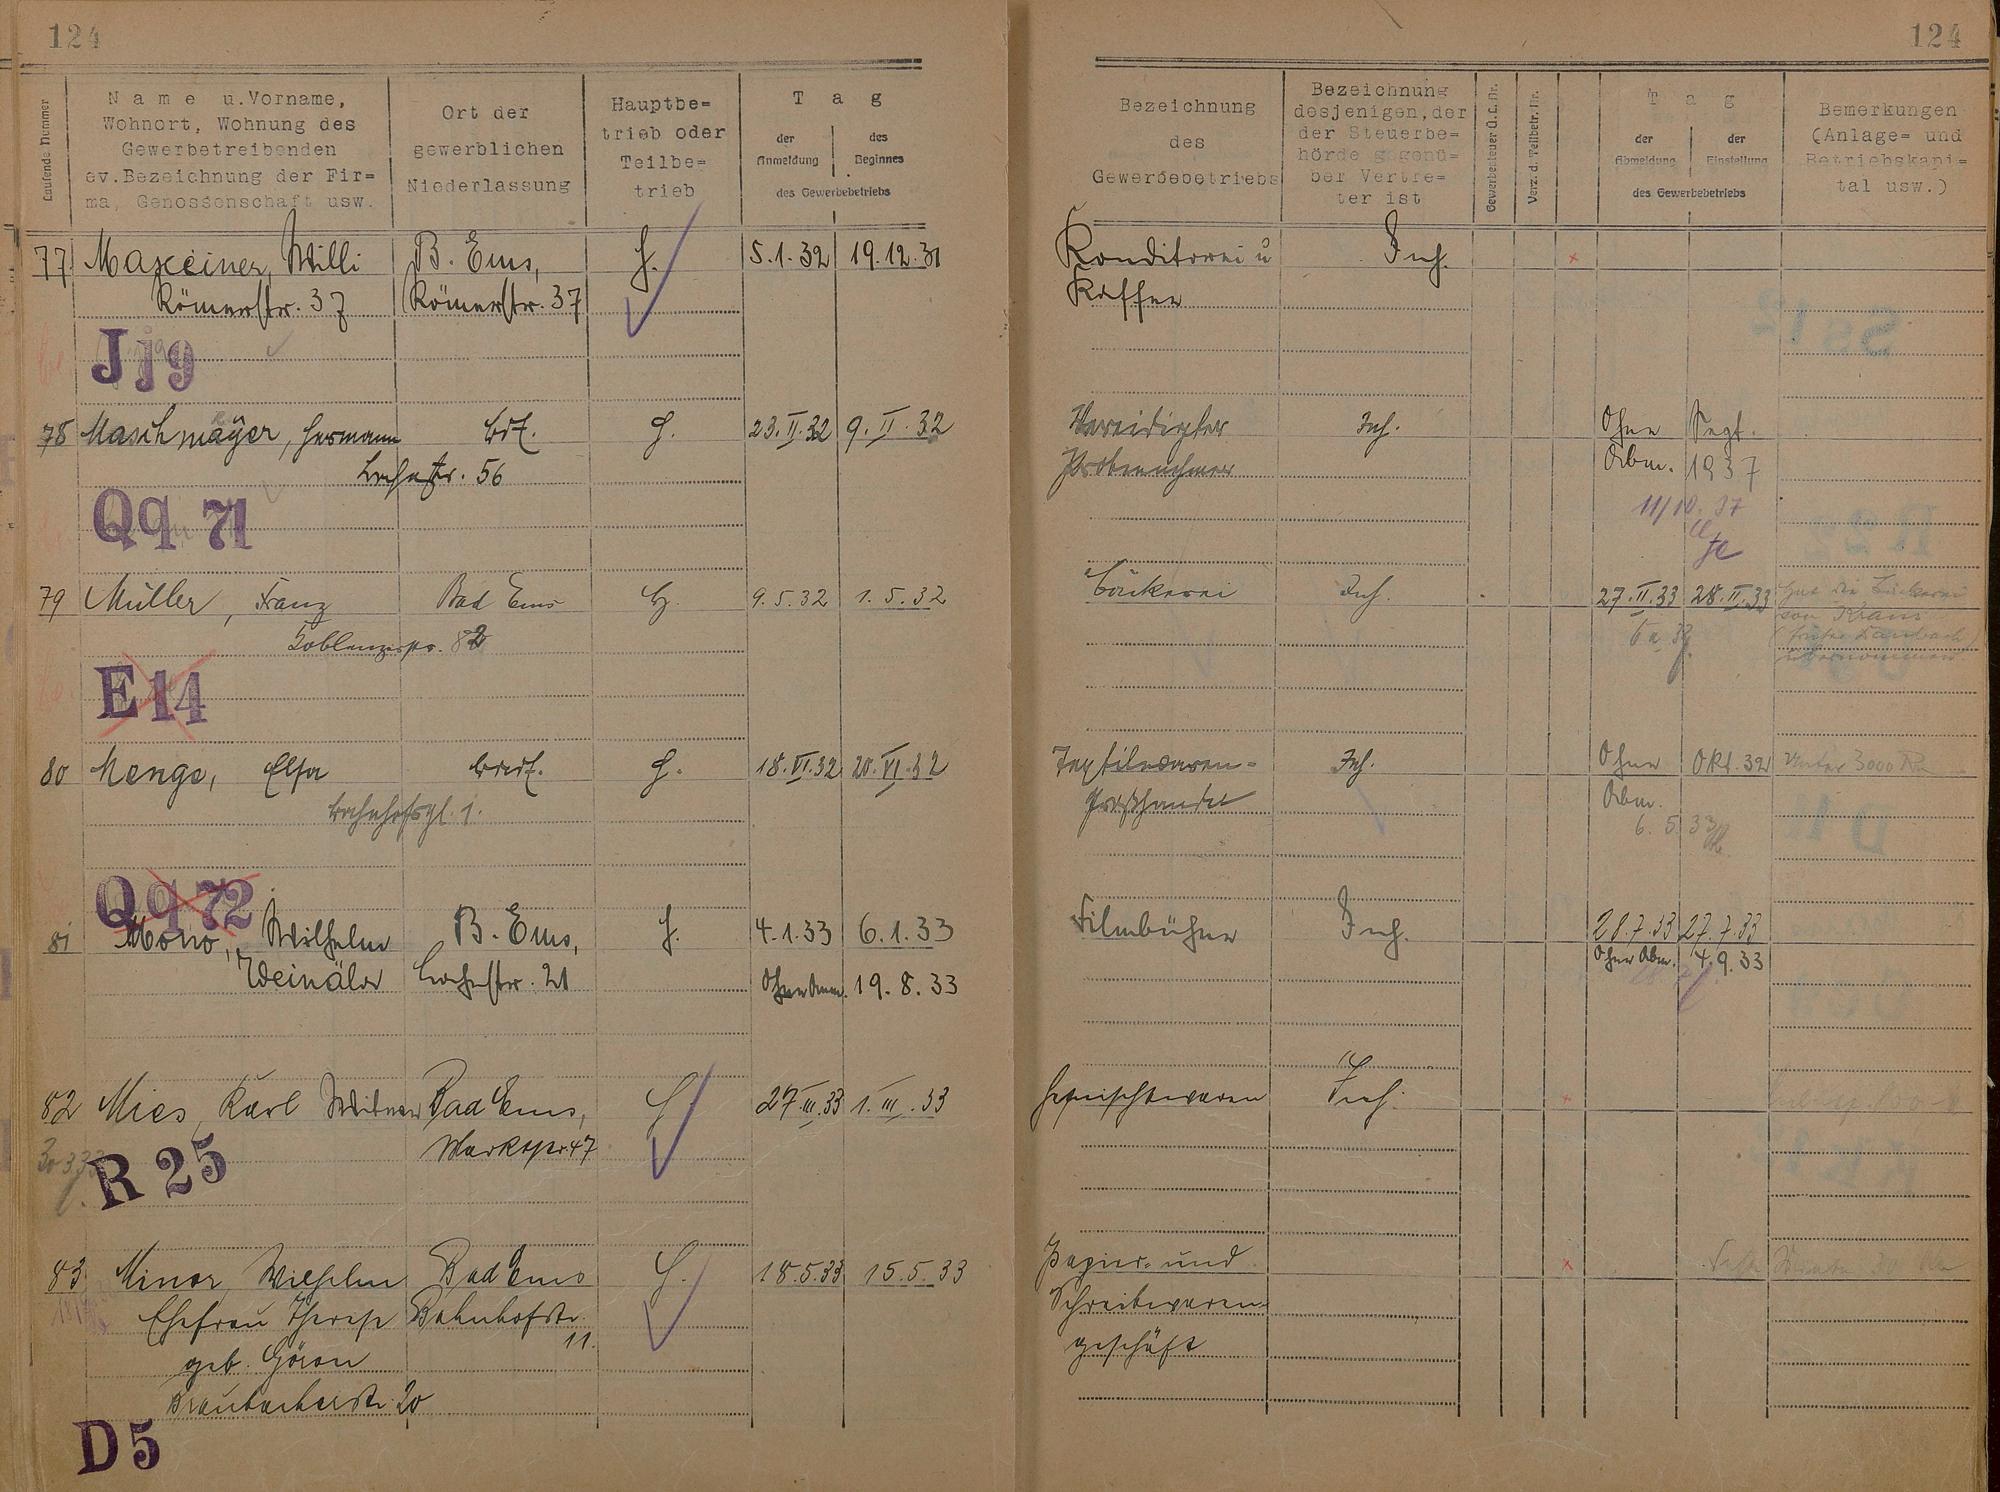 124
124
Laufende Nummer
Name u. Vorname,
Wohnort, Wohnung des
Gewerbetreibenden
ev. Bezeichnung der Fir=
ma, Genossenschaft usw.
Ort der
gewerblichen
Niederlassung
Hauptbe=
trieb oder
Teilbe=
trieb
Tag
der
Anmeldung
des
Beginnes
des Gewerbebetriebs
Bezeichnung
des
Gewerbebetriebs
Bezeichnung
desjenigen, der
der Steuerbe=
hörde gegenü=
ber Vertre=
ter ist
Gewerbesteuer Ü.L.Nr.
Verz. d. Teilbetr. Nr.
Tag
der
Abmeldung
der
Einstellung
des Gewerbebetriebs
Bemerkungen
(Anlage= und
Betriebskapi=
tal usw.)
77 Maxeiner, Willi B. Ems, H. 5.1.32 19.12.31 Konditorei u Inh.
Römerstr. 37 Römerstr. 37 Kaffee
Jj9
78 Maschmayer, Hermann H. 23.II.32 9.II.32 Vereidigter Inh. Ohne Sept.
Bahnstr. 56 Probenehmer Abm. 1937
11/10.37
Qq 71
79 Müller, Franz Bad Ems 9.5.32 1.5.32 Bäckerei Inh. 27.II.33 28.II.33 Hat die Bäckerei
Coblenzerstr. 82 von Kraus
(früher Laubach)
übernommen.
E14
80 Menge, Elsa H. 18.VI.32 20.VI.32 Textilwaren- Inh. Ohne Okt. 32 Unter 3000 RM
Bahnhofspl. 1. Großhandel Abm.
6.5.33
Qq 72
81 Mono, Wilhelm B. Ems, H. 4.1.33 6.1.33 Filmbühne Inh. 28.7.33 27.7.33
Weinähr Bahnstr. 21 Ohne Anm. 19.8.33 Ohne Abm. 4.9.33
82 Mies, Karl Witwe Bad Ems, H. 27.III.33 1.III.33 Gemischtwaren Inh.
Marktstr 47
R 25
83 Minor, Wilhelm Bad Ems H. 18.5.33 15.5.33 Papier- und
Ehefrau Therese Bahnhofstr. Schreibwaren-
11. geschäft
geb. Göron
Braubacherstr. 20
D5